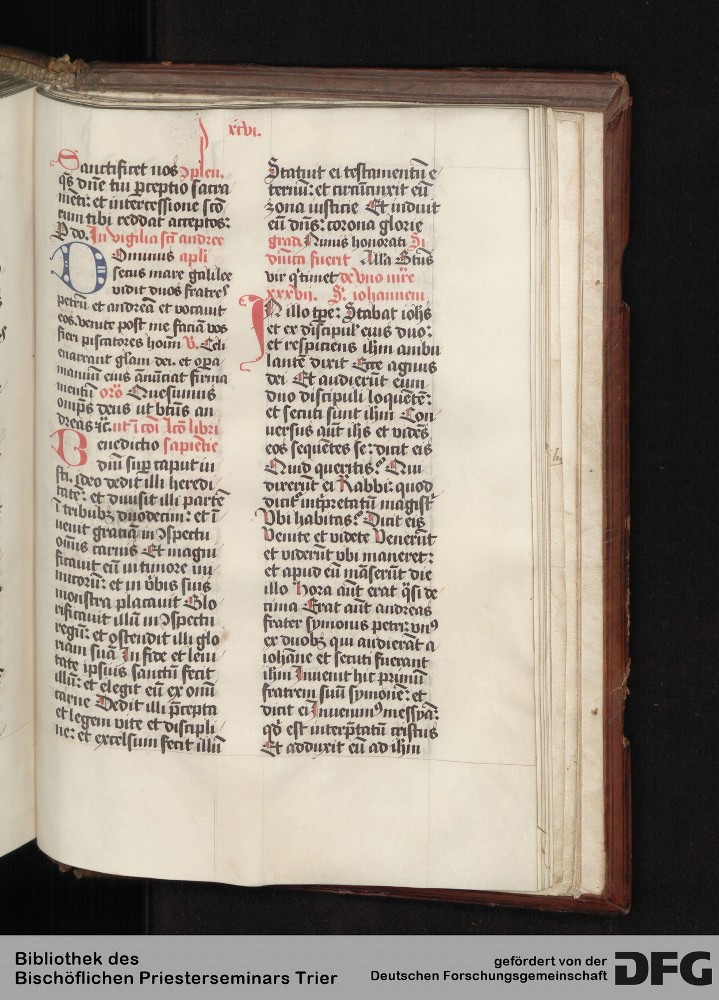 xcvi.
Sanctificet nos ꝯplen.
q̄s dn̄e tui ꝑceptio sacra
mēti: et intercessione sc̄o
rum tibi reddat acceptos:
P do. In vigilia sc̄i andree
Ominus apli
secus mare galilee
vidit duos fratres
petrū et andreā et vocauit
eos. venite post me faciā vos
fieri piscatores hoīm V. Celi
enarrant glām dei. et oꝑa
manuum eius ānūciat firma
mentū orō Quesumus
omp̄s deus ut btūs an
dreas ⁊c̄. ut ī cōi lc̄o libri
Benedictio sapiētie
dn̄i suꝑ caput iu
sti. ideo dedit illi heredi
tatē: et diuisit illi partē
ī tribubꝫ duodecim: et ī
uenit gratiam in ꝯspectu
om̄is carnis Et magni
ficauit eū in timore ini
micorū: et in v̄bis suis
monstra placauit Glo
rificauit illū in ꝯspectu
regū: et ostendit illi glo
riam suā In fide et leni
tate ipsius sanctū fecit
illū: et elegit eū ex om̄i
carne Dedit illi p̄cepta
et legem vite et discipli
ne: et excelsum fecit illū
Statuit ei testamentū e
ternū: et circūcinxit eū
zona iusticie Et induit
eū dn̄s: corona glorie
grad. Nimis honorati Si
dn̄ica fuerit Alla Sctūs
vir q̄timet de vno mr̄e
xxxvii. S. iohannem
In illo tp̄e: Stabat ioh̄s
et ex discipul' eius duo:
et respiciens ih̄m ambu
lantē dixit Ecce agnus
dei Et audierūt eum
duo discipuli loquētē:
et secuti sunt ih̄m Con
uersus aūt ih̄s et vidēs
eos sequētes se: dicit eis
Quid queritis? Qui
dixerūt ei Rabbi: quod
dicit' int̄pretatū magist'
Vbi habitas? Dicit eis
Venite et videte Venerūt
et viderūt vbi maneret:
et apud eū māserūt die
illo Hora aūt erat q̄si de
cima Erat aūt andreas
frater symonis petri: vnꝰ
ex duobꝫ qui audierāt a
iohāne et secuti fuerant
ih̄m Inuenit hic primū
fratrem suū symonē: et
dicit ei Inuenimꝰ messyā:
qd̄ est interp̄tatū cristus
Et adduxit eū ad ih̄m
Bibliothek des
Bischöflichen Priesterseminars Trier
gefördert von der
Deutschen Forschungsgemeinschaft
DFG